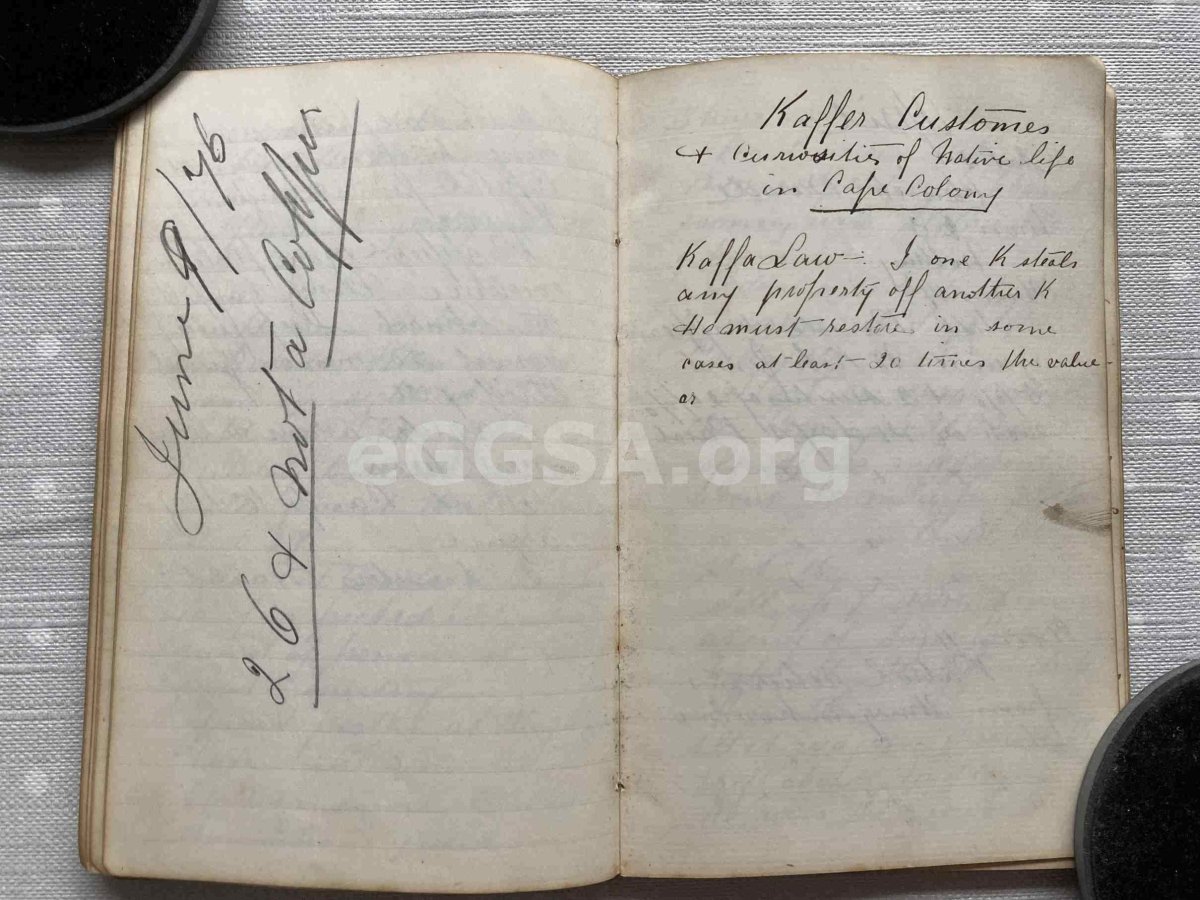 June 9/76
26 & not a Copper
Kaffer Customes
& Curiosities of Native life
in Cape Colony
Kaffa Law - I one K steals
any property off another K
He must restore in some
cases at least 20 times the value
or
eGGSA.org